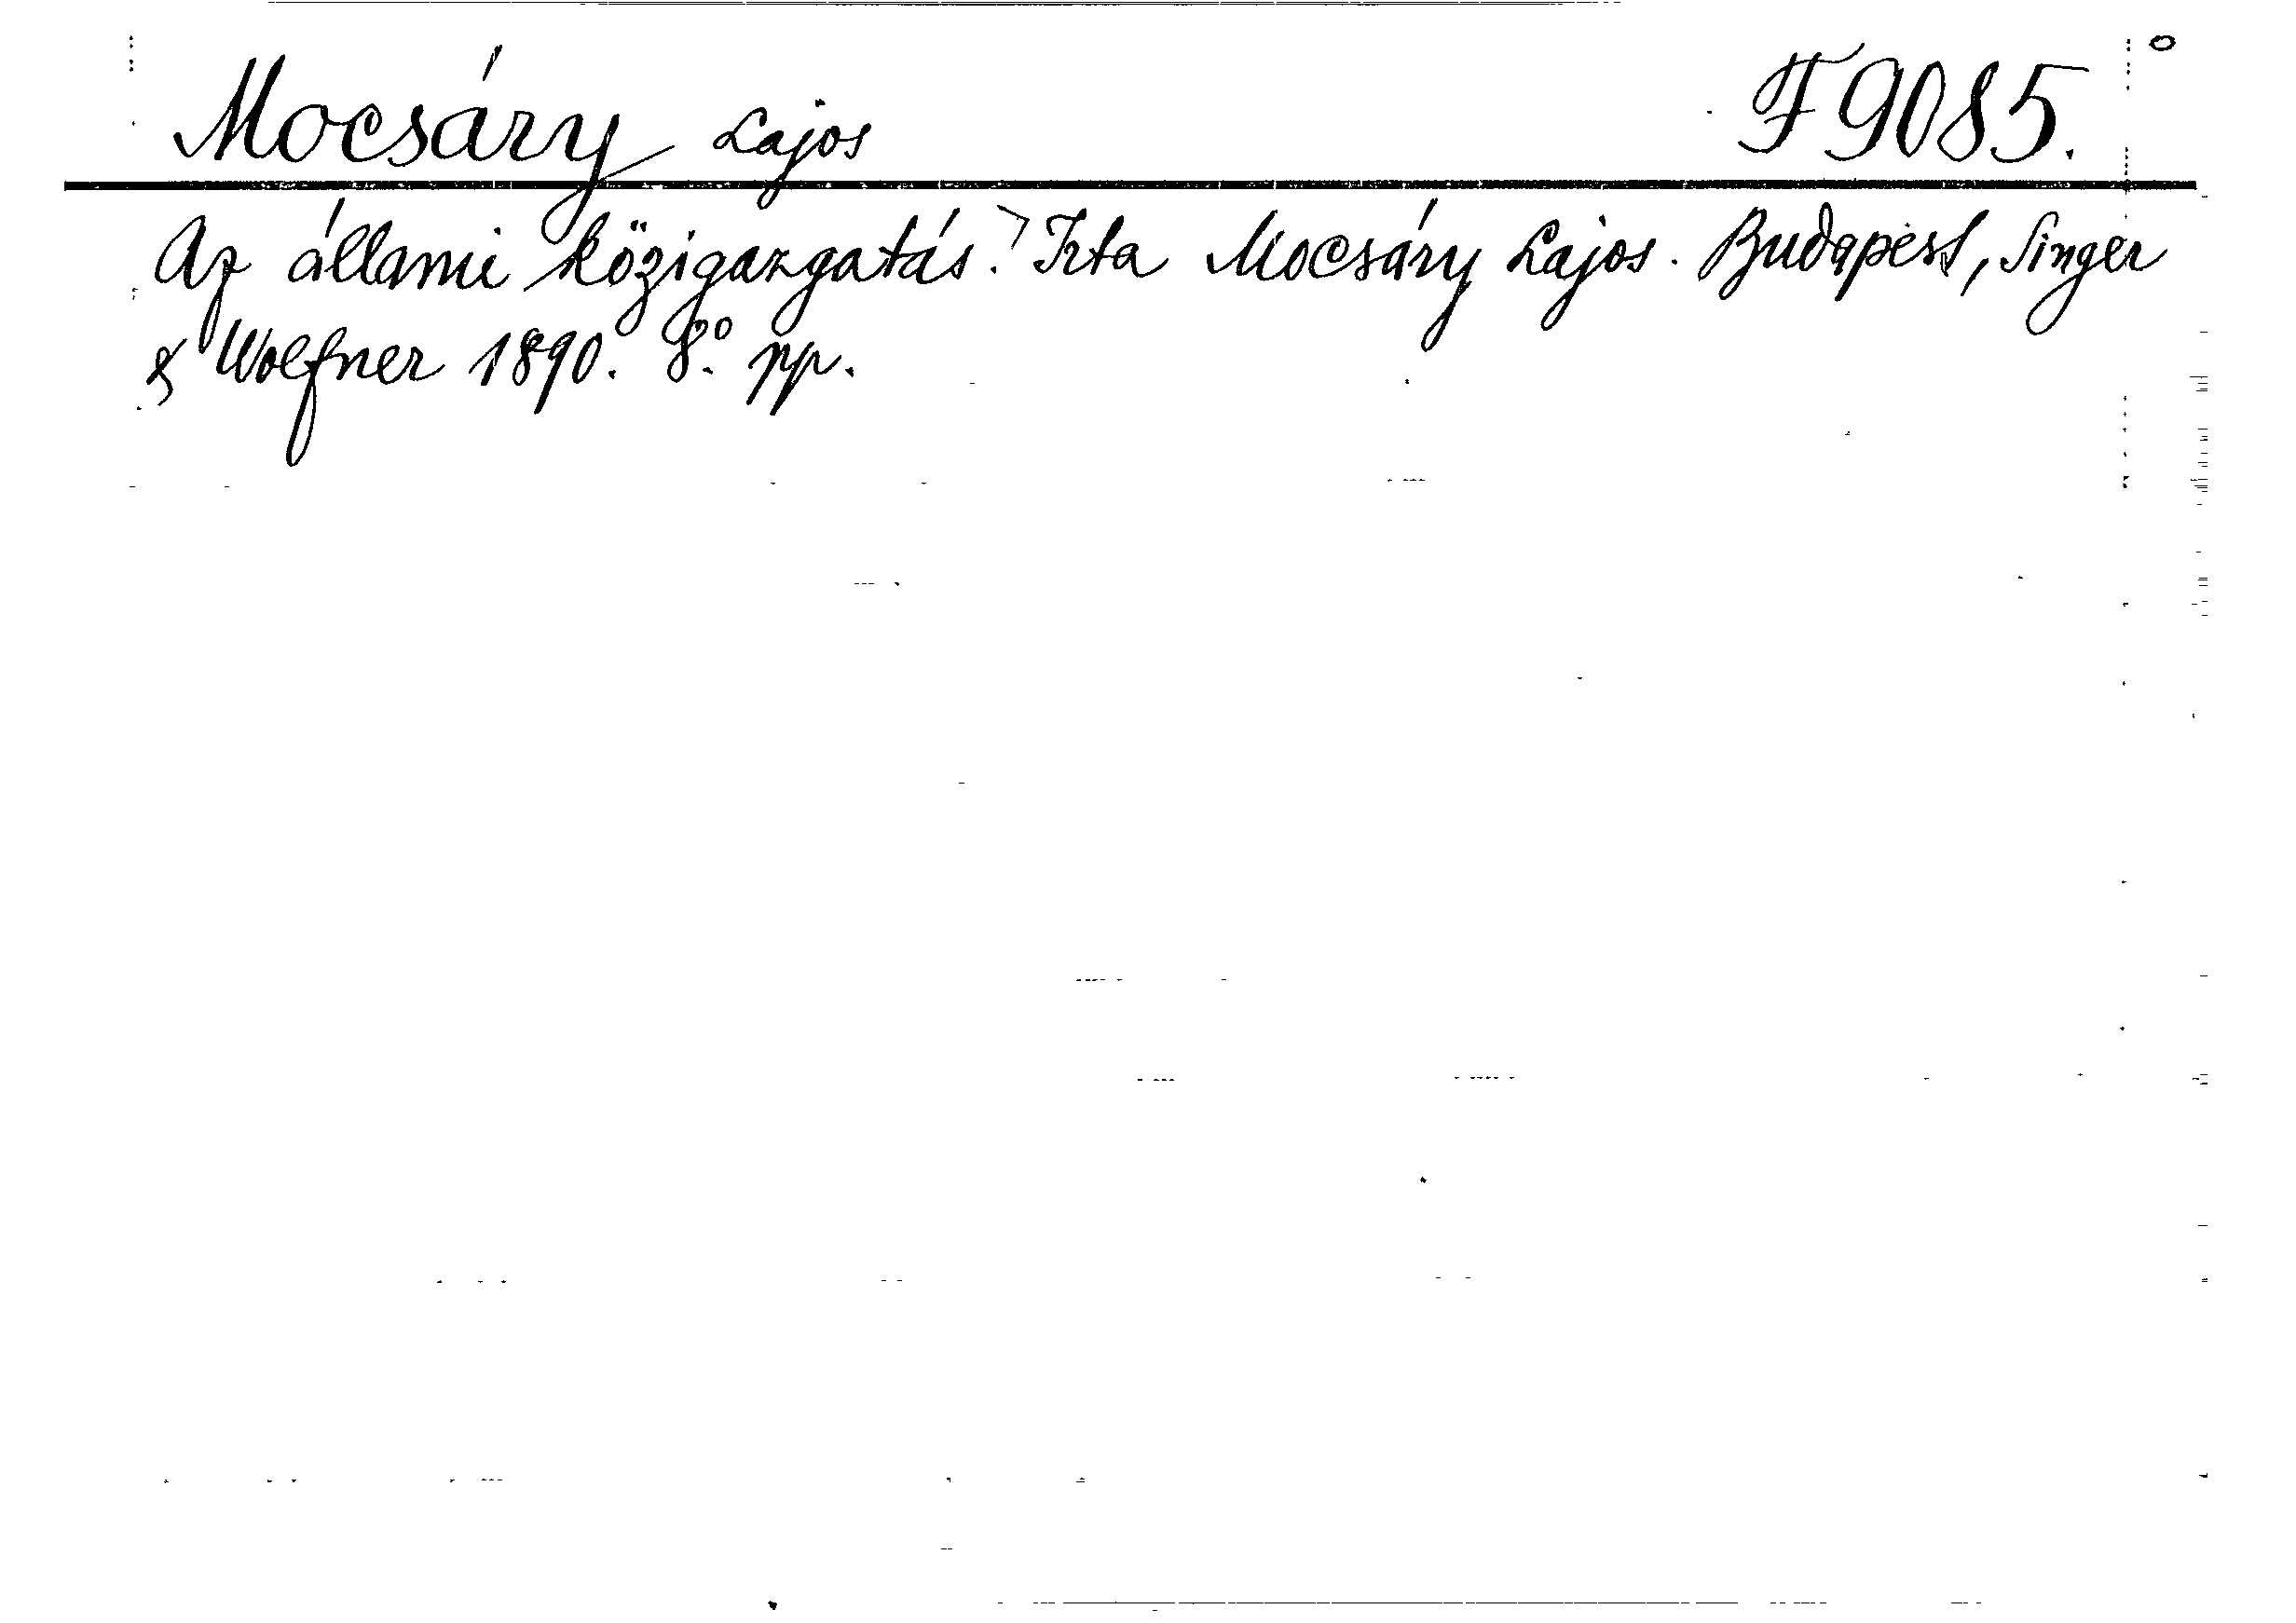 Mocsáry Lajos F 9085.
Az állami közigazgatás. Irta Mocsáry Lajos. Budapest, Singer
& Wolfner 1890. 8.° pp.